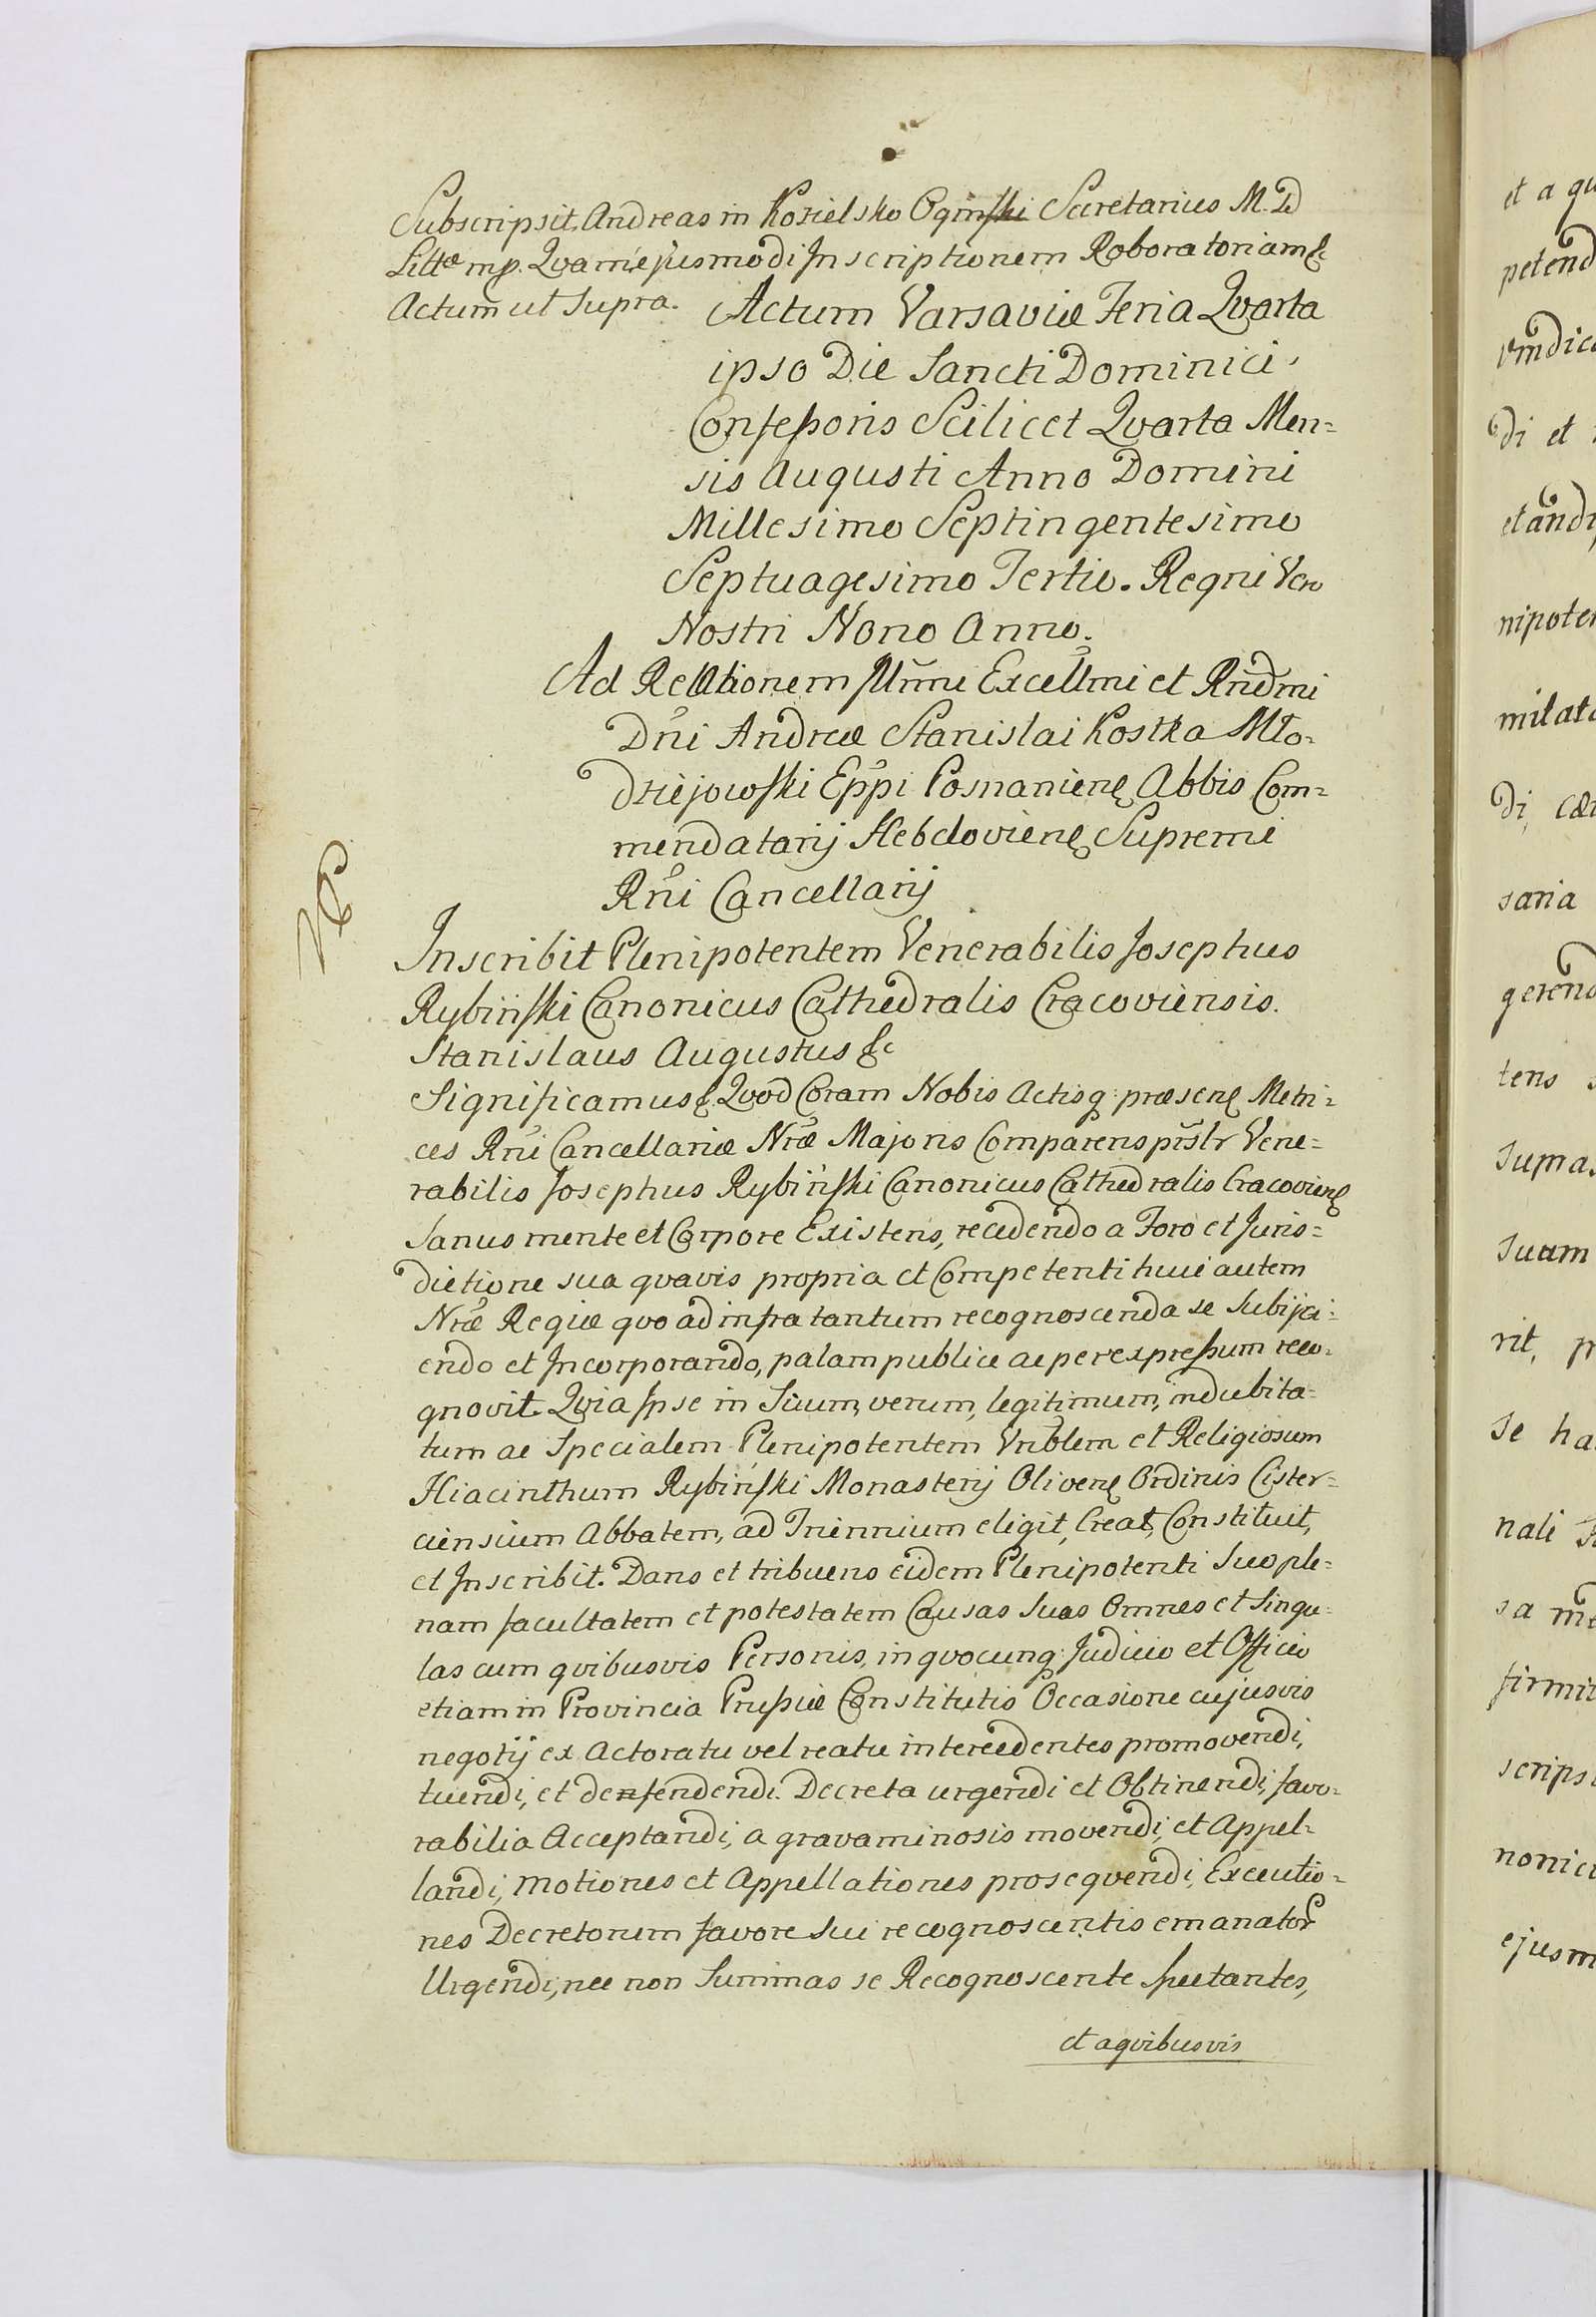 Subscripsit Andreas in Kozielsko Oginski Secretarius M. D
Littæ mp. Quam ejusmodi Inscriptionem Roboratoriam &c
Actum ut Supra.
Actum Varsaviæ Feria Qvarta
ipso Die Sancti Dominici
Confessoris Scilicet Qvarta Men=
sis Augusti Anno Domini
Millesimo Septingentesimo
Septuagesimo Tertio. Regni Vero
Nostri Nono Anno.
Ad Relationem Illmi Excellmi et Rndmi
Dni Andreæ Stanislai Kostka Mło=
dziejowski Eppi Posnaniens Abbis Com=
mendatarij Hebdoviens Supremi
Rni Cancellarij
Inscribit Plenipotentem Venerabilis Josephus
Rybiński Canonicus Cathedralis Cracoviensis.
Stanislaus Augustus &c
Significamus &c Qvod Coram Nobis Actisq: præsens Metri=
ces Rni Cancellariæ Nræ Majoris Comparens prslr Vene=
rabilis Josephus Rybiński Canonicus Cathedralis Cracoviens
Sanus mente et Corpore Existens, recedendo a Foro et Juris=
dictione sua qvavis propria et Competenti huic autem
Nræ Regiæ qvo ad infra tantum recognoscenda se Subijci=
endo et Incorporando, palam publice ac per expressum reco=
gnovit. Qvia Ipse in Suum, verum, legitimum, indubita=
tum ac Specialem Plenipotentem Vnblem et Religiosum
Hiacinthum Rybiński Monasterij Olivens Ordinis Cister=
ciensium Abbatem, ad Triennium eligit, Creat, Constituit,
et Inscribit. Dans et tribuens eidem Plenipotenti Suo ple=
nam facultatem et potestatem Causas Suas Omnes et Singu=
las cum qvibusvis Personis, in qvocunq: Judicio et Officio
etiam in Provincia Prussiæ Constitutis Occasione cujusvis
negotij ex Actoratu vel reatu intercedentes promovendi,
tuendi, et defendendi. Decreta urgendi et Obtinendi, favo=
rabilia Acceptandi, a gravaminosis movendi, et Appel=
landi, motiones et Appellationes proseqvendi, Executio=
nes Decretorum favore Sui recognoscentis emanator
Urgendi, nec non Summas se Recognoscente Spectantes,
et a qvibusvis